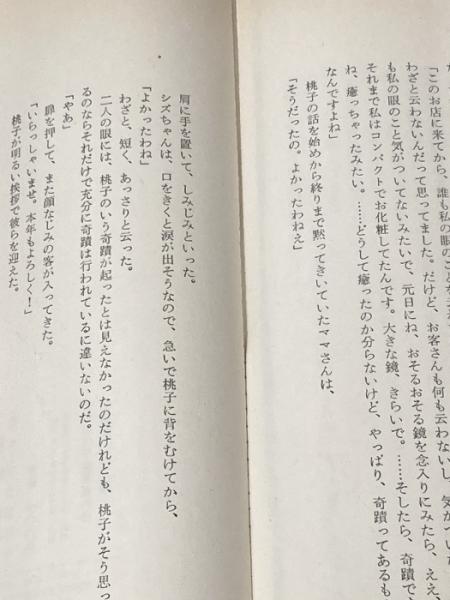 「このお店に来てから、誰も私の眼のことを
わざと云わないんだって思ってました。だけど、お客さんも何も云わないし、気が
も私の眼のこと気がついてないみたいで、元日にね、おそるおそる鏡を念入りにみたら、ええ、
それまで私はコンパクトでお化粧してたんです。大きな鏡、きらいで。……そしたら、奇蹟で
ね、癒っちゃったみたい。……どうして癒ったのか分らないけど、やっぱり、奇蹟ってあるも
なんですよね」
桃子の話を始めから終りまで黙ってきいていたママさんは、
「そうだったの。よかったわねえ」
肩に手を置いて、しみじみといった。
シズちゃんは、口をきくと涙が出そうなので、急いで桃子に背をむけてから、
「よかったわね」
わざと、短く、あっさりと云った。
二人の眼には、桃子のいう奇蹟が起ったとは見えなかったのだけれども、桃子がそう思っ
るのならそれだけで充分に奇蹟は行われているに違いないのだ。
「やあ」
扉を押して、また顔なじみの客が入ってきた。
「いらっしゃいませ。本年もよろしく！」
桃子が明るい挨拶で彼らを迎えた。